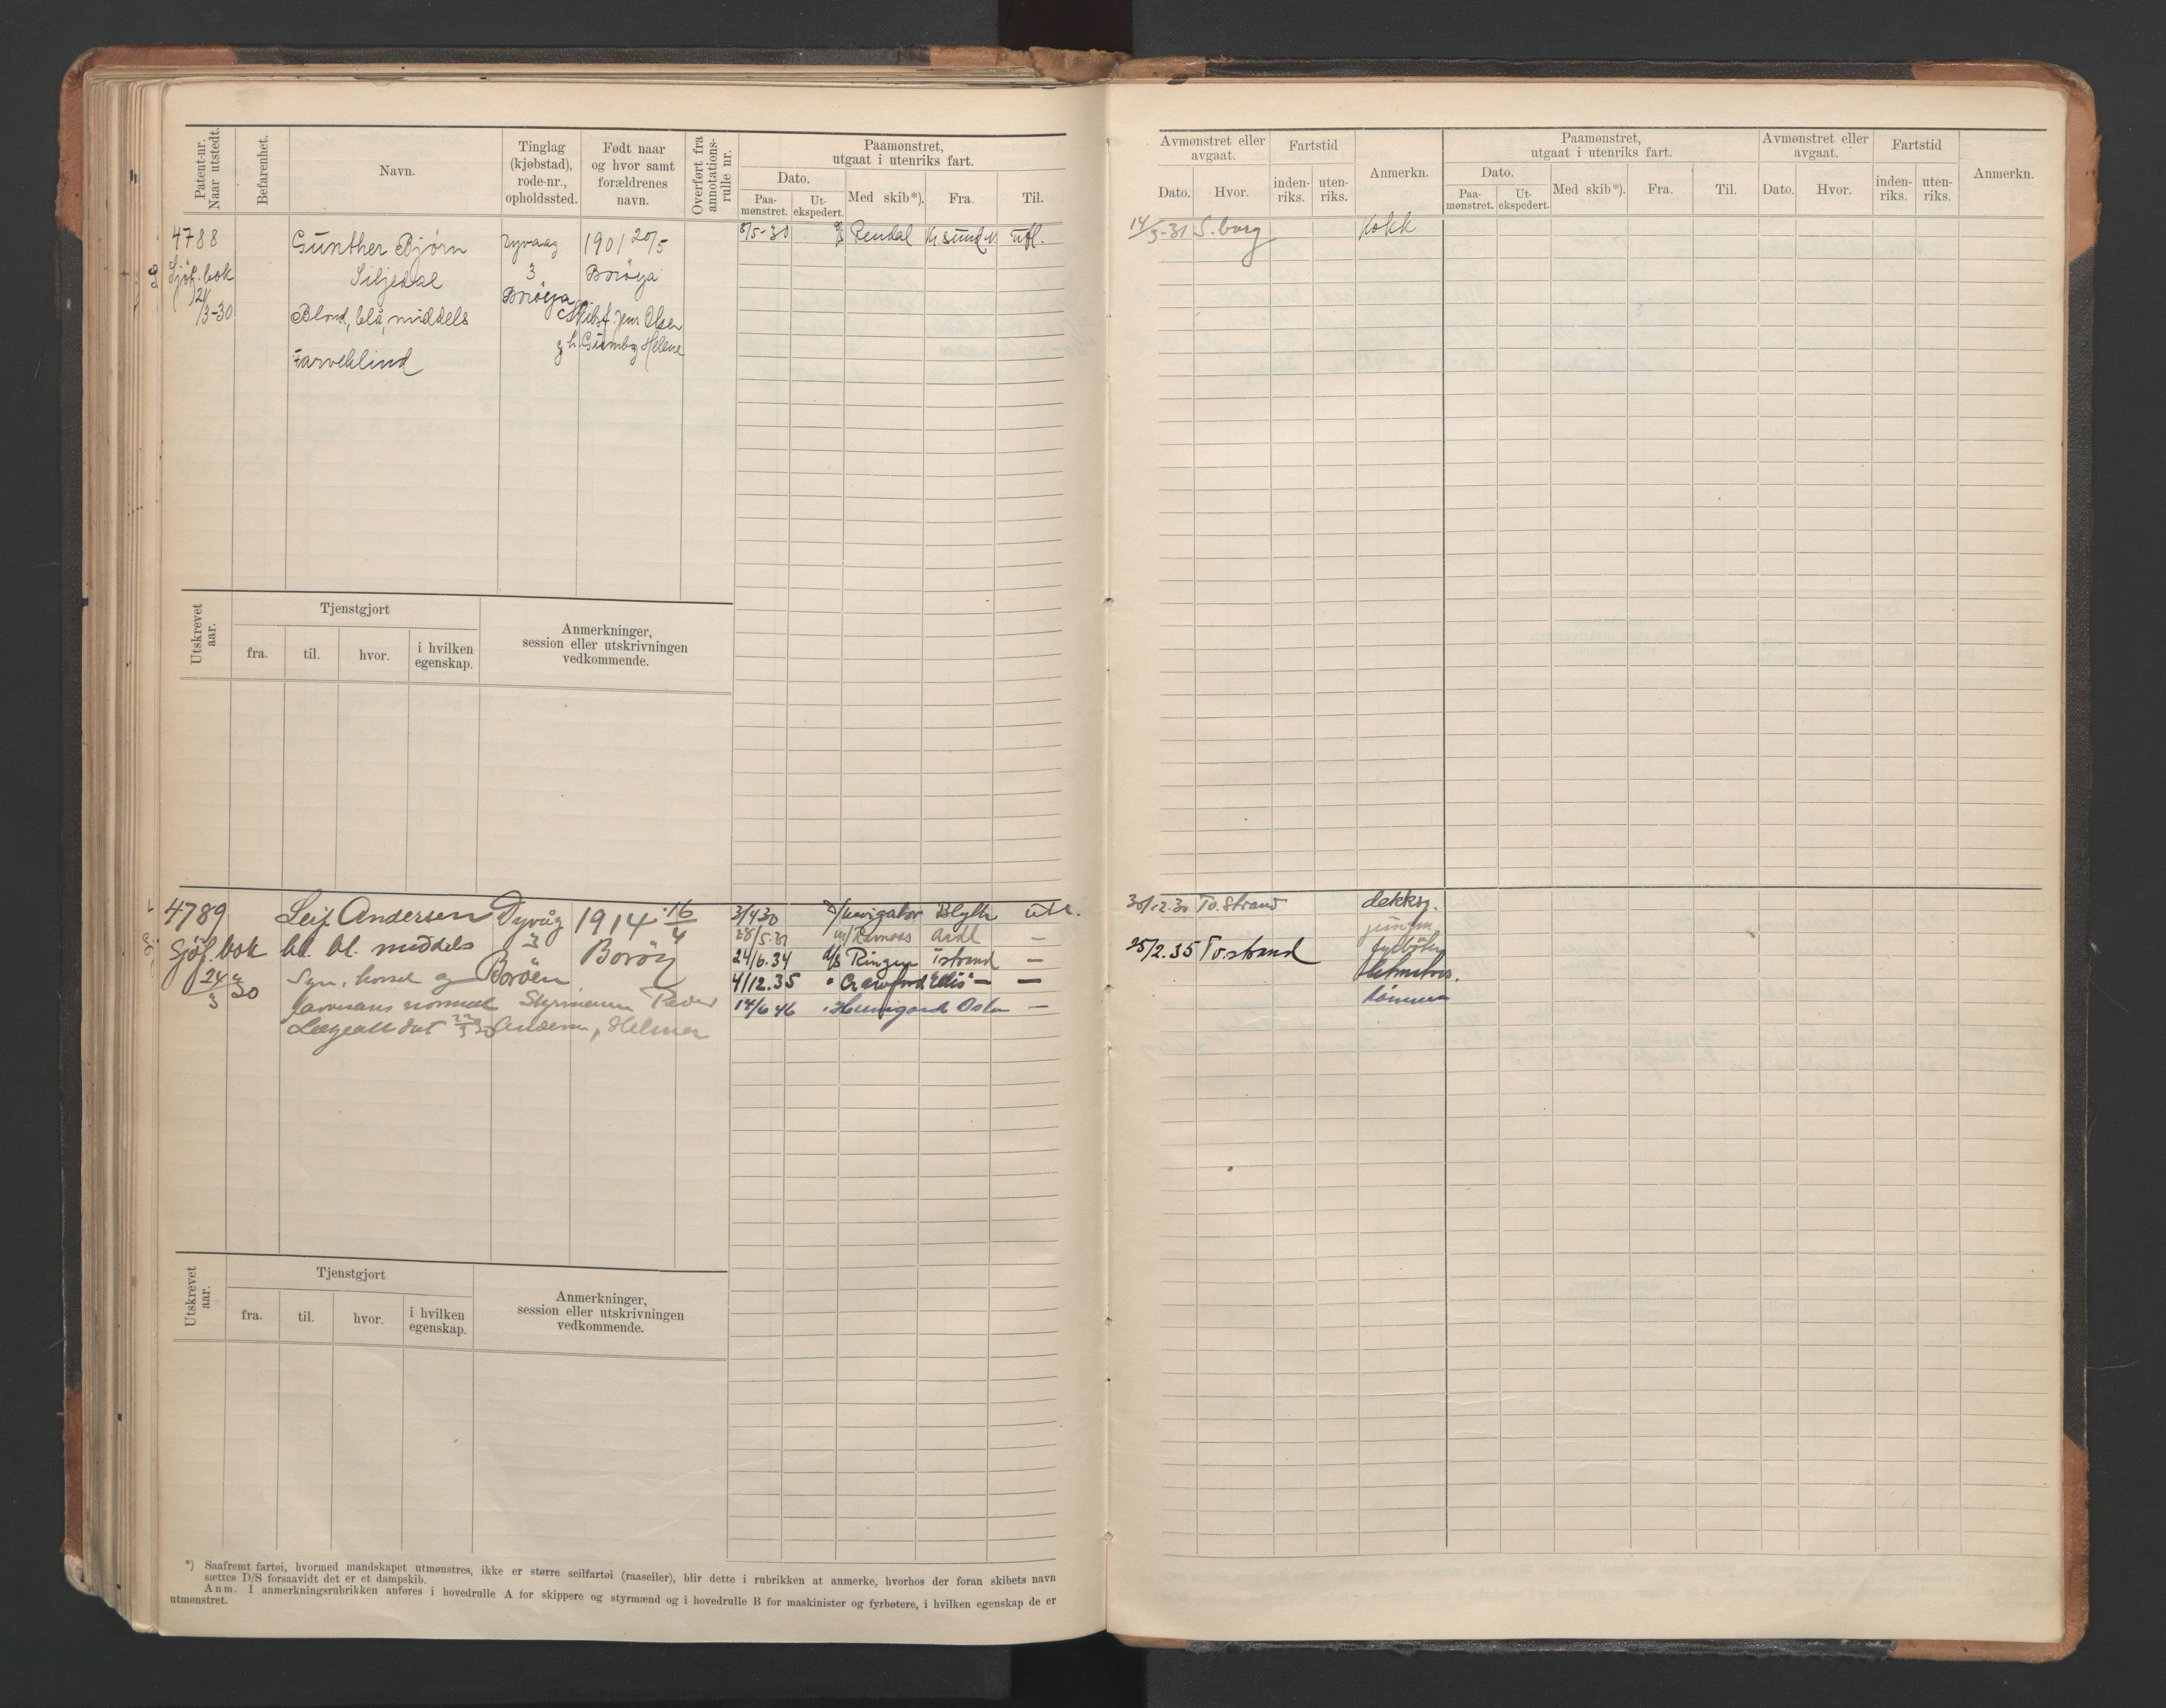 Patent-nr. Naar utstedt.
Befarenhet.
Navn.
Tinglag (kjøbstad), rode-nr., opholdssted.
Født naar og hvor samt forældrenes navn.
Overført fra annotations-rulle nr.
Paamønstret, utgaat i utenriks fart.
Dato.
Paa-mønstret.
Ut-ekspedert.
Med skib*).
Fra.
Til.
4788
Gunther Bjørn
Dyvaag
1901 20/5
8/5-30
Rendal
Kr.sund N
utl.
Sjøf. bok
Siljedal
3
Borøya
21/3-30
Borøya
Blond, blå, middels
Skibsf. Jens Olsen
g. h. Gumborg Helene
Farveblind
Utskrevet aar.
Tjenstgjort
fra.
til.
hvor.
i hvilken egenskap.
Anmerkninger, session eller utskrivningen vedkommende.
4789
Leif Andersen
Dyvåg
1914 16/4
3/4 30
Navigator
Blyth
utl.
Sjøf. bok
bl. bl. middels
3
Borøy
28/5.31
Ramaas
Ardl
—
24/3 30
Syn, hørsel og
Borøen
24/6.34
d/s Ringen
T.strand
—
4/12.35
" Crawford Ellis
—
—
farvesans normal
Styrmann Peder
14/6 46
Oslo
—
Lægeatt dat 22/3 30
Andersen, Helmer
Utskrevet aar.
Tjenstgjort
fra.
til.
hvor.
i hvilken egenskap.
Anmerkninger, session eller utskrivningen vedkommende.
*) Saafremt fartøi, hvormed mandskapet utmønstres, ikke er større seilfartøi (raaseiler), blir dette i rubrikken at anmerke, hvorhos der foran skibets navn
sættes D/S forsaavidt det er et dampskib.
Anm. I anmerkningsrubrikken anføres i hovedrulle A for skippere og styrmænd og i hovedrulle B for maskinister og fyrbøtere, i hvilken egenskap de er
utmønstret.
Avmønstret eller avgaat.
Dato.
Hvor.
Fartstid
inden-riks.
uten-riks.
Anmerkn.
Paamønstret, utgaat i utenriks fart.
Dato.
Paa-mønstret.
Ut-ekspedert.
Med skib*).
Fra.
Til.
Avmønstret eller avgaat.
Dato.
Hvor.
Fartstid
inden-riks.
uten-riks.
Anmerkn.
14/3-31
S.borg
Kokk
30/12.30
Tv.strand
deksg.
jungm.
25/2.35
Tv.strand
fyrbøter
letmatros.
tømmerm